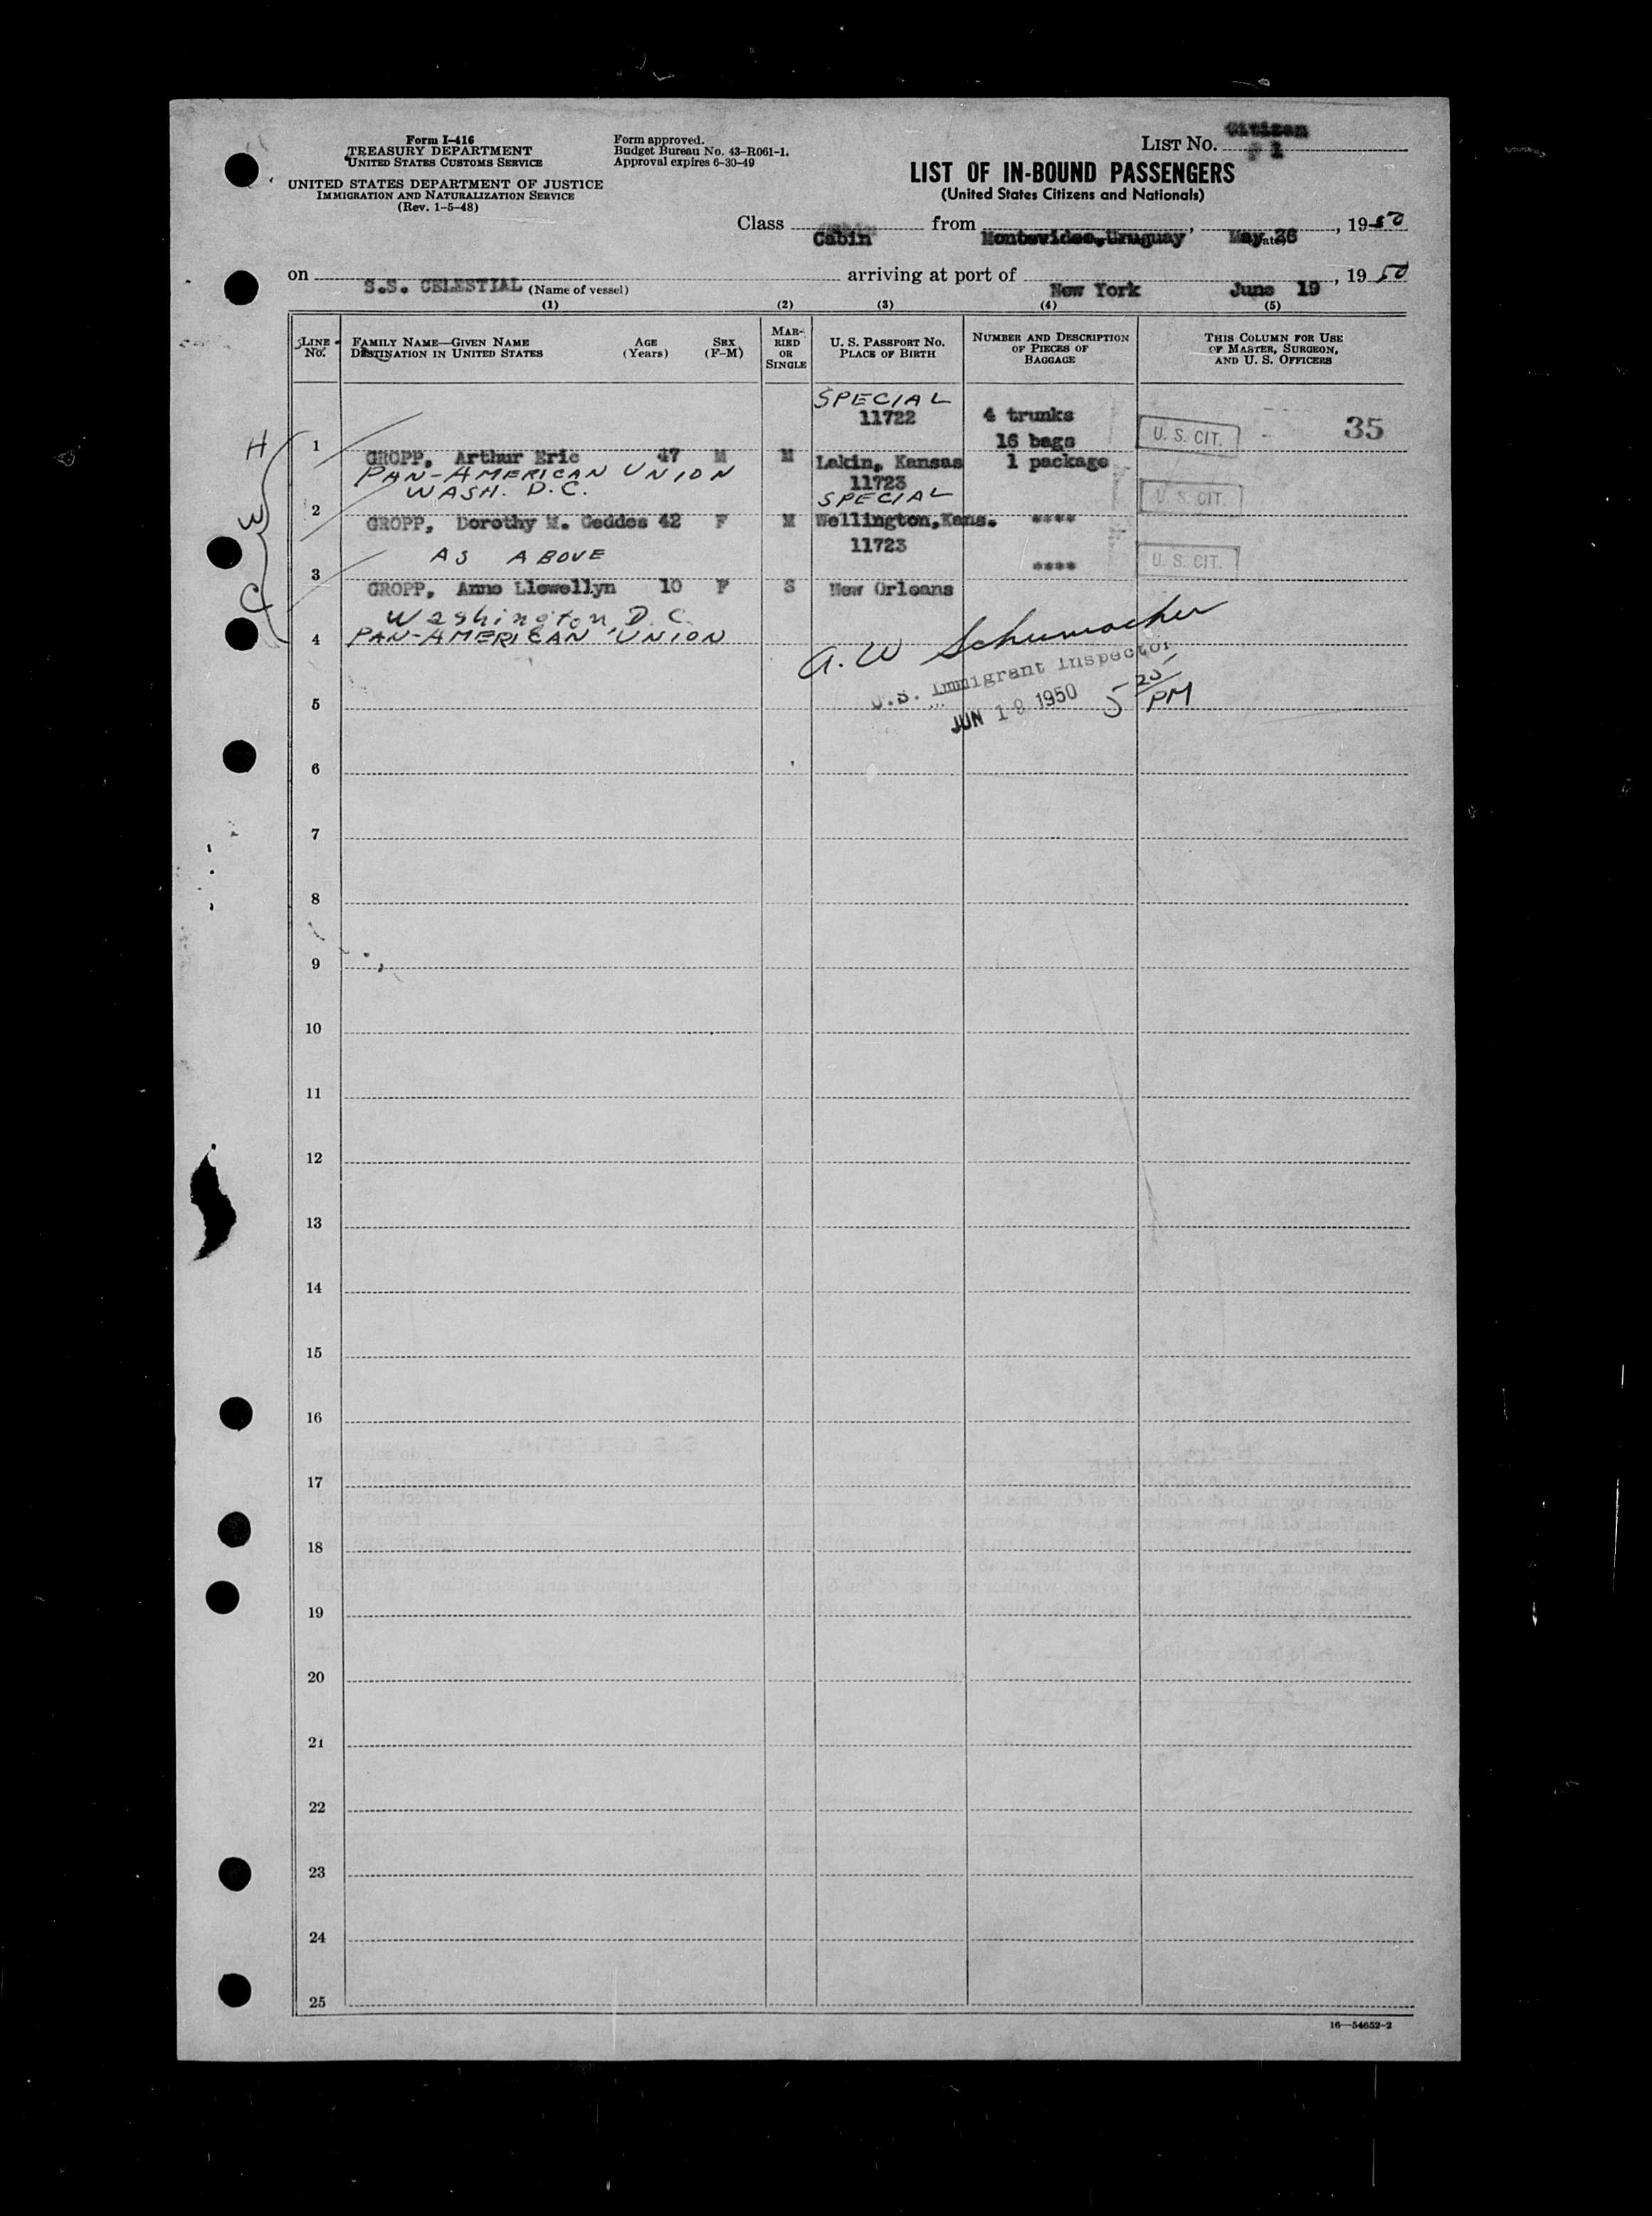 Form I-416
TREASURY DEPARTMENT
UNITED STATES CUSTOMS SERVICE
UNITED STATES DEPARTMENT OF JUSTICE
IMMIGRATION AND NATURALIZATION SERVICE
(Rev. 1-5-48)
Form approved.
Budget Bureau No. 43-R061-1.
Approval expires 6-30-49
LIST NO. Citizen
1
LIST OF IN-BOUND PASSENGERS
(United States Citizens and Nationals)
Class Cabin from Montevideo, Uruguay, May 26, 1950
on S.S. CELESTIAL (Name of vessel) arriving at port of New York June 19, 1950
(1) (2) (3) (4) (5)
LINE NO.
FAMILY NAME—GIVEN NAME AGE (Years) SEX (F-M)
DESTINATION IN UNITED STATES
MARRIED OR SINGLE
U. S. PASSPORT NO.
PLACE OF BIRTH
NUMBER AND DESCRIPTION OF PIECES OF BAGGAGE
THIS COLUMN FOR USE OF MASTER, SURGEON, AND U. S. OFFICERS
SPECIAL
11722 4 trunks
H 16 bags U. S. CIT. 35
1 GROPP, Arthur Eric 47 M M Lakin, Kansas 1 package
PAN-AMERICAN UNION
WASH. D.C.
11723
SPECIAL U. S. CIT.
2 GROPP, Dorothy M. Geddes 42 F M Wellington, Kans. ****
W
AS ABOVE 11723
**** U. S. CIT.
3 GROPP, Anne Llewellyn 10 F S New Orleans
C
Washington, D.C.
4 PAN-AMERICAN UNION
A. W Schumacher
U.S. Immigrant Inspector
JUN 19 1950 5 25 PM
5
6
7
8
9
10
11
12
13
14
15
16
17
18
19
20
21
22
23
24
25
16—54652-2